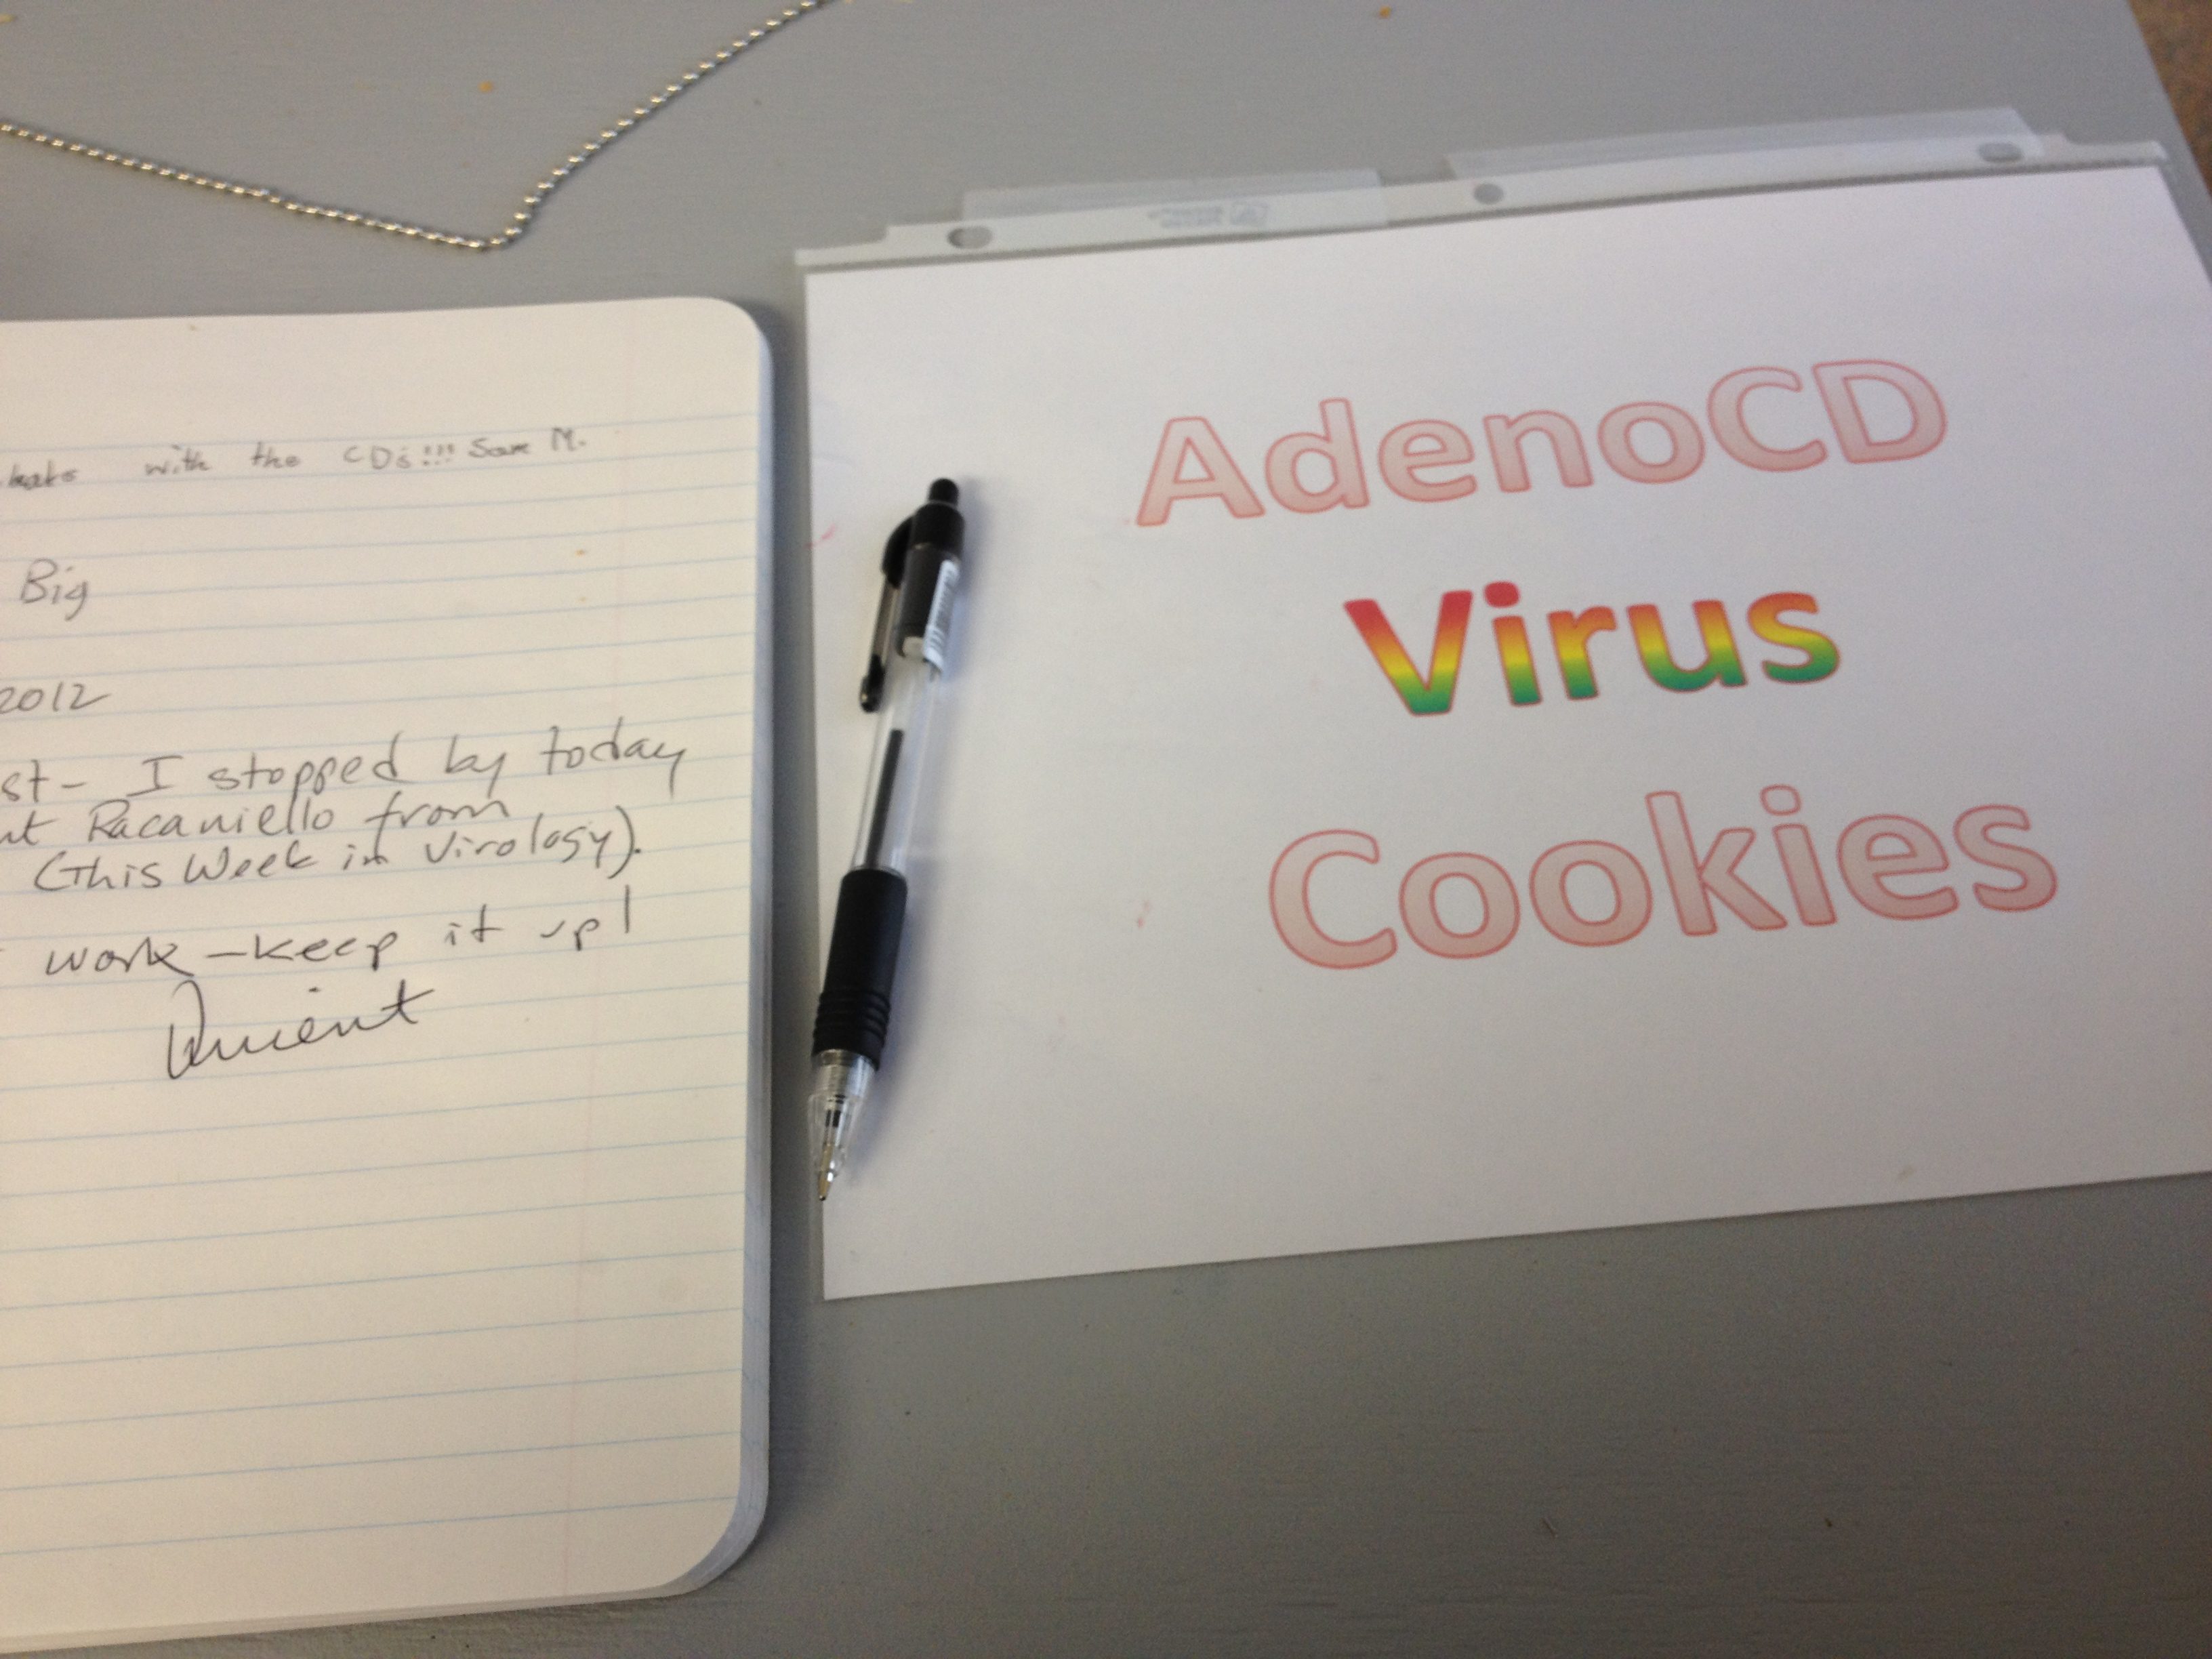 with the CDs!!! Sam M.
Big
2012
st- I stopped by today
nt Racaniello from
(This Week in Virology).
work -keep it up!
Vincent
AdenoCD
Virus
Cookies